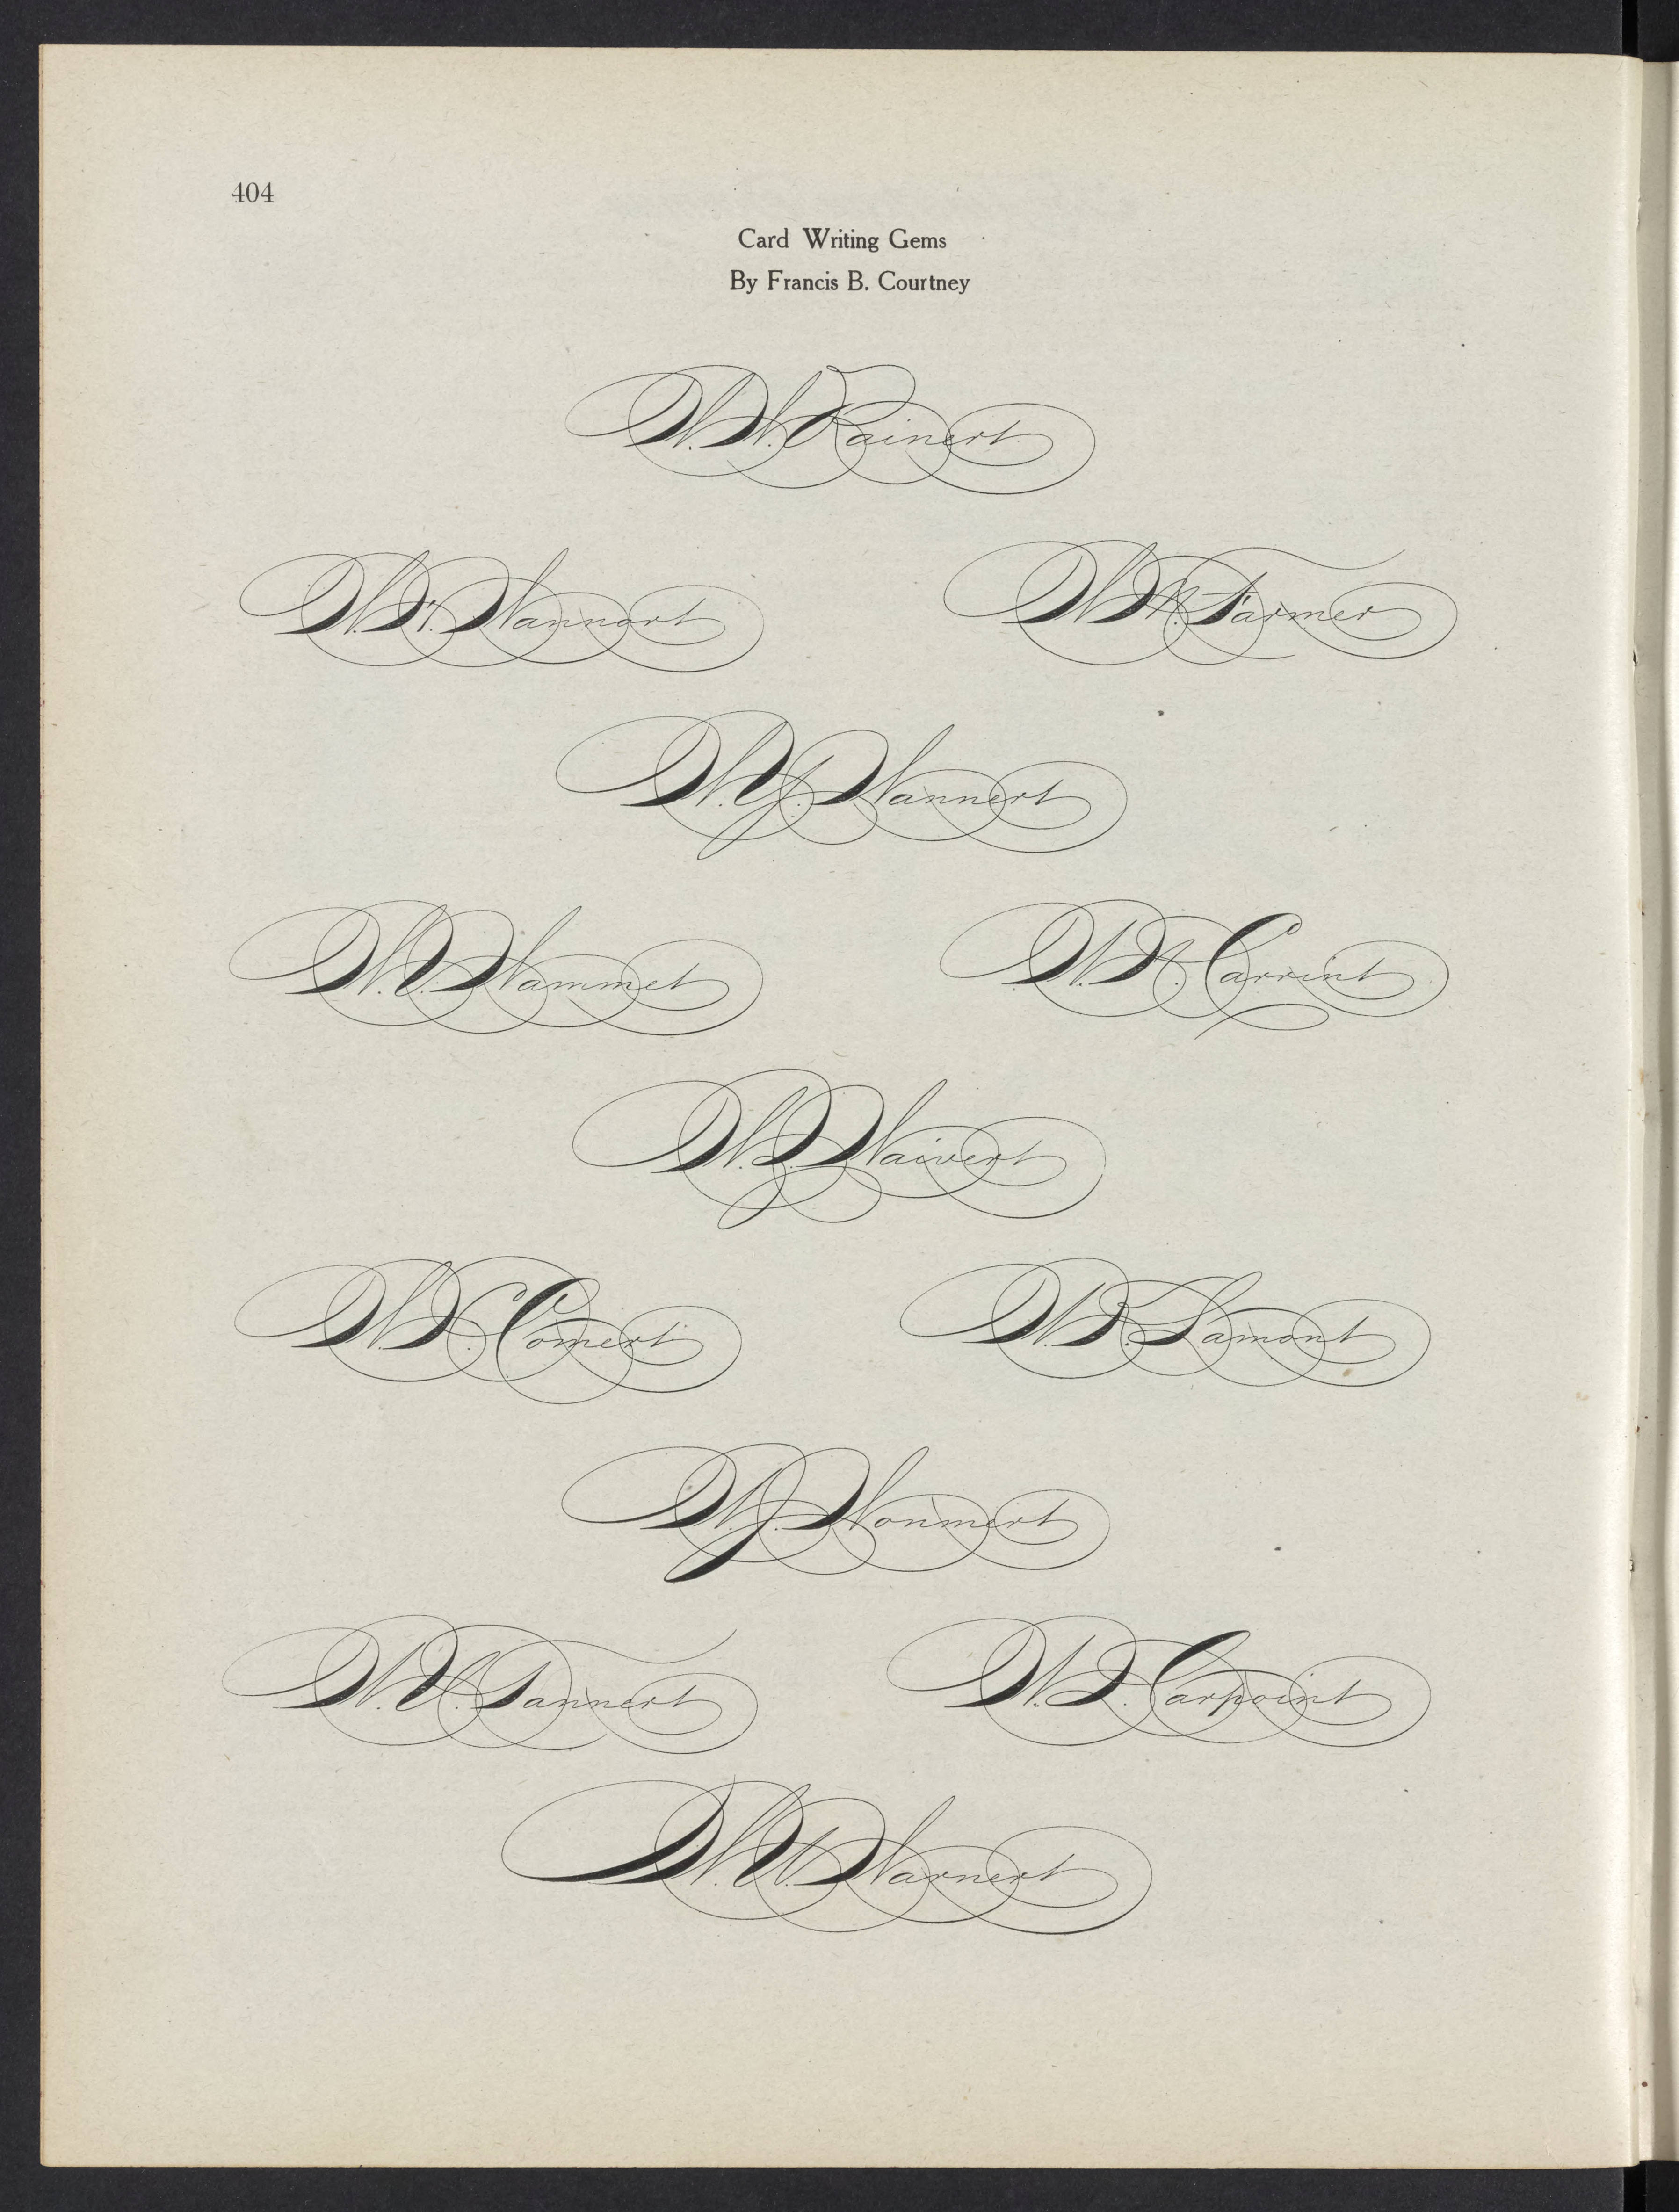 404
Card Writing Gems
By Francis B. Courtney
W. W. Rainert
W. Wannart
W. Farmer
W. Y. Wannert
W. V. Wammet
W. Carrint
W. Waivert
W. Comert
W. Lamont
W. J. Wonmert
W. Tannert
W. Carpoint
W. U. Warnert